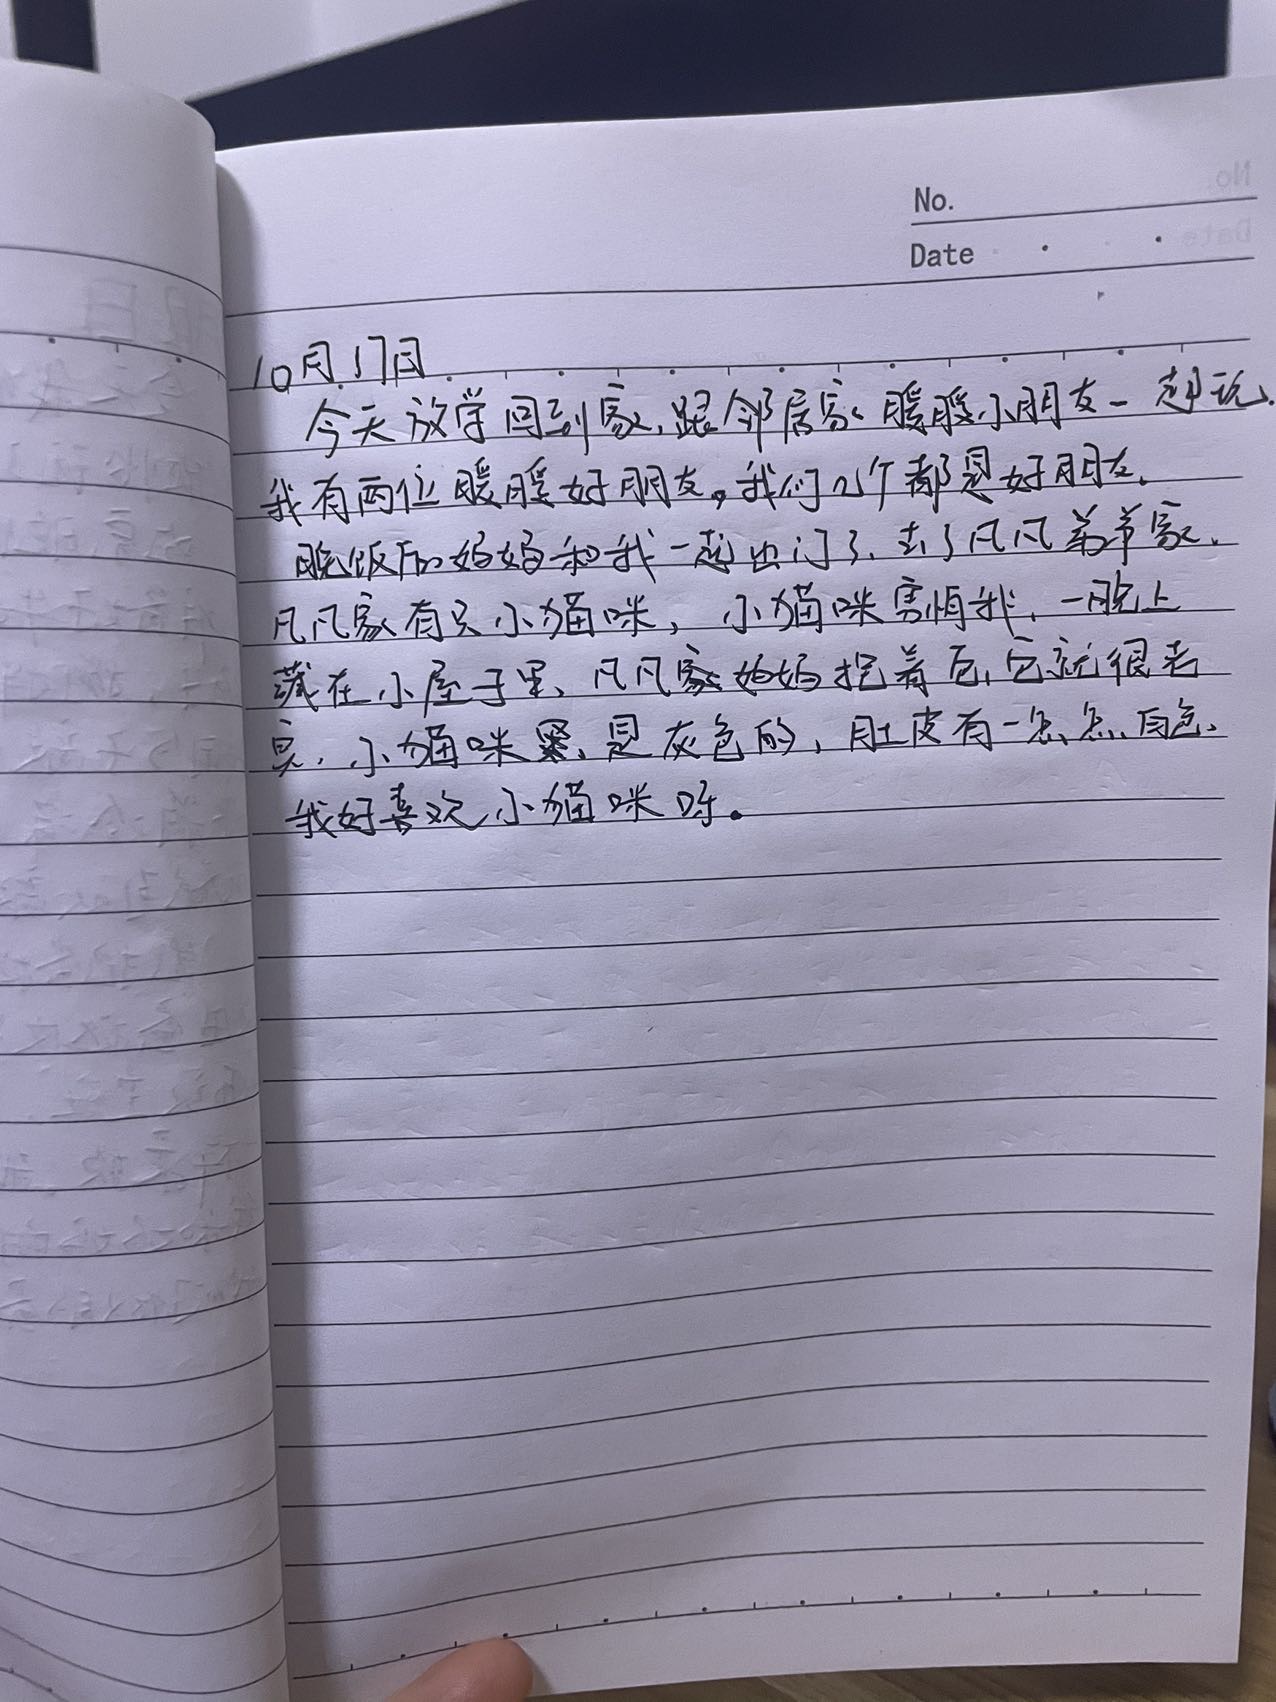 No.
Date
10月17日
今天放学回到家,跟邻居家暖暖小朋友一起玩.
我有两位暖暖好朋友。我们几个都是好朋友.
晚饭后妈妈和我一起出门了.去了凡凡弟弟家.
凡凡家有只小猫咪,小猫咪害怕我.一晚上
藏在小屋子里、凡凡家妈妈抱着它,它就很老
实.小猫咪是灰色的,肚皮有一点点白色.
我好喜欢小猫咪呀。